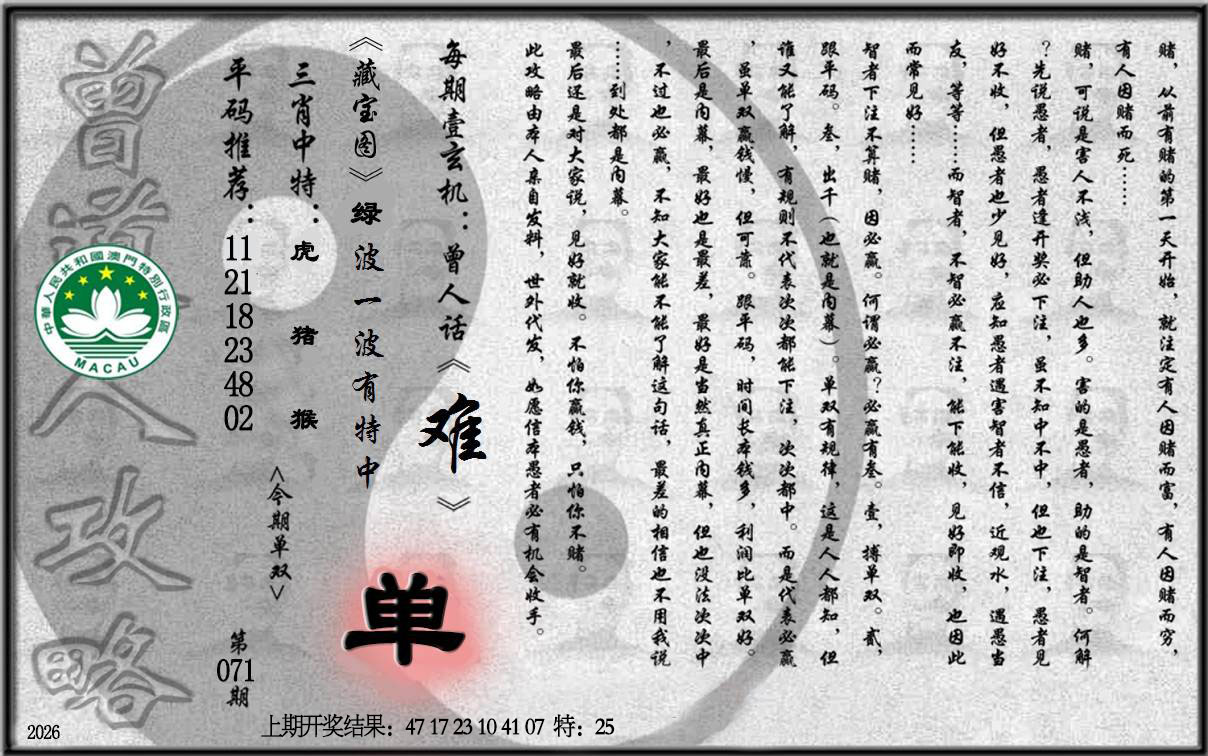 赌，从前有赌的第一天开始，就注定有人因赌而富，有人因赌而穷，
有人因赌而死……
赌，可说是害人不浅，但助人也多。害的是愚者，助的是智者。何解
？先说愚者，愚者逢开奖必下注，虽不知中不中，但也下注，愚者见
好不收，但愚者也少见好，应知愚者遇害智者不信，近观水，遇愚当
友，等等……而智者，不智必赢不注，能下能收，见好即收，也因此
而常见好……
智者下注不算赌，因必赢。何谓必赢？必赢有叁。壹，搏单双。贰，
跟平码。叁，出千（也就是内幕）。单双有规律，这是人人都知，但
谁又能了解，有规则不代表次次都能下注，次次都中。而是代表必赢
，虽单双赢钱慢，但可靠。跟平码，时间长本钱多，利润比单双好。
最后是内幕，最好也是最差，最好是当然真正内幕，但也没法次次中
，不过也必赢，不知大家能不能了解这句话，最差的相信也不用我说
……到处都是内幕。
最后还是对大家说，见好就收。不怕你赢钱，只怕你不赌。
此攻略由本人亲自发料，世外代发，如愿信本愚者必有机会收手。
每期壹玄机：曾人话《难》
《藏宝图》绿波一波有特中
单
三肖中特：虎 猪 猴
<今期单双>
平码推荐：11 21 18 23 48 02
第071期
曾道人攻略
中華人民共和國澳門特別行政區
MACAU
上期开奖结果：47 17 23 10 41 07 特：25
2026